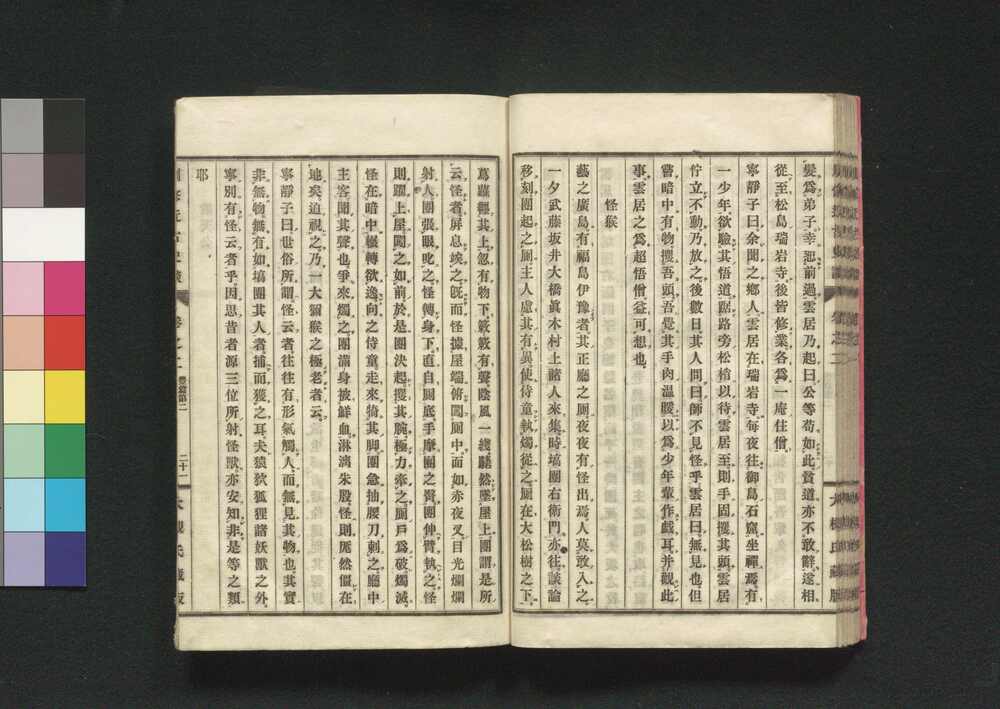 髮爲弟子幸恕前過雲居乃起曰公等苟如此貧道亦不敢辭遂相
從至松島瑞岩寺後皆修業各爲一庵住僧
寧靜子曰余聞之鄉人雲居在瑞岩寺每夜往御島石窟坐禪焉有
一少年欲驗其悟道踞路旁松梢以待雲居至則手固攫其頭雲居
佇立不動乃放之後數日其人問曰師不見怪乎雲居曰無見也但
嘗暗中有物攫吾頭吾覺其手肉溫暖以爲少年輩作戲耳并觀此
事雲居之爲超悟僧益可想也
怪猴
藝之廣島有福島伊豫者其正廳之厠夜夜有怪出焉人莫敢入之
一夕武藤坂井大橋眞木村上諸人來集時塙團右衛門亦往談論
移刻團起之厠主人慮其有異使侍童執燭從之厠在大松樹之下
蔦蘿纒其上忽有物下簌簌有聲陰風一綫颯然墜屋上團謂是所
云怪者屛息竢之旣而怪據屋端俯闖厠中面如赤夜叉目光爛爛
射人團張眼叱之怪轉身下直自厠底手摩團之臀團伸臂執之怪
則躍上屋闖之如前於是團決起攫其腕極力牽之厠戶爲破燭滅
怪在暗中輾轉欲逸向之侍童走來掎其脚團急抽腰刀刺之廳中
主客聞其聲也爭來燭之團滿身被鮮血淋漓朱殷怪則厖然僵在
地矣迫視之乃一大獼猴之極老者云
寧靜子曰世俗所謂怪云者往往有形氣觸人而無見其物也其實
非無物無有如塙團其人者捕而獲之耳夫猿狄狐狸諸妖獸之外
寧別有怪云者乎因思昔者源三位所射怪獸亦安知非是等之類
耶
卷之二
豐篇第二
二十一
大槻氏藏版